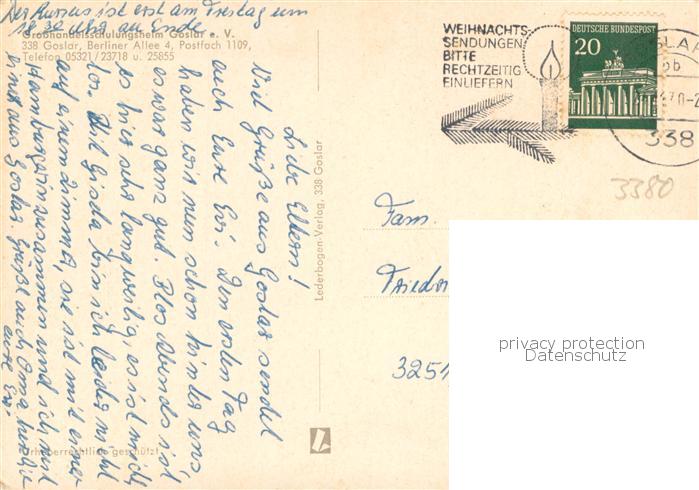 Der Kursus ist erst am Freitag um
18.30 Uhr zu Ende
Großhandelsschulungsheim Goslar e. V.
338 Goslar, Berliner Allee 4, Postfach 1109,
Telefon 05321/23718 u. 25855
Liebe Eltern!
Viel Grüße aus Goslar sendet
euch Eure Evi. Den ersten Tag
haben wir nun schon hinter uns,
es war ganz gut. Blos Abends ist
es hier sehr langweilig, es ist nichts
los. Mit Gisela bin ich leider nicht
auf einem Zimmer, sie ist mit einer
Hamburgerin zusammen und ich mit
einer aus Goslar. Grüße auch Oma herzlich
eure Evi
Urheberrechtlich geschützt
Lederbogen-Verlag, 338 Goslar
WEIHNACHTS-
SENDUNGEN
BITTE
RECHTZEITIG
EINLIEFERN
DEUTSCHE BUNDESPOST
20
338
3380
Fam.
Friedr
3251
privacy protection
Datenschutz